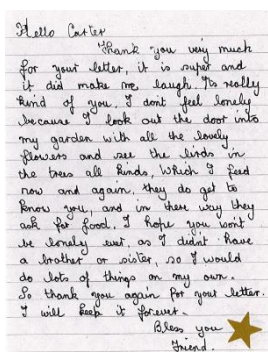 Hello Carter
Thank you very much
for your letter, it is super and
it did make me laugh. Its really
kind of you. I dont feel lonely
because I look out the door into
my garden with all the lovely
flowers and see the birds in
the trees all kinds, which I feed
now and again, they do get to
know you, and in there way they
ask for food. I hope you won't
be lonely ever, as I didnt have
a brother or sister, so I would
do lots of things on my own.
So thank you again for your letter.
I will keep it forever.
Bless you
Friend.